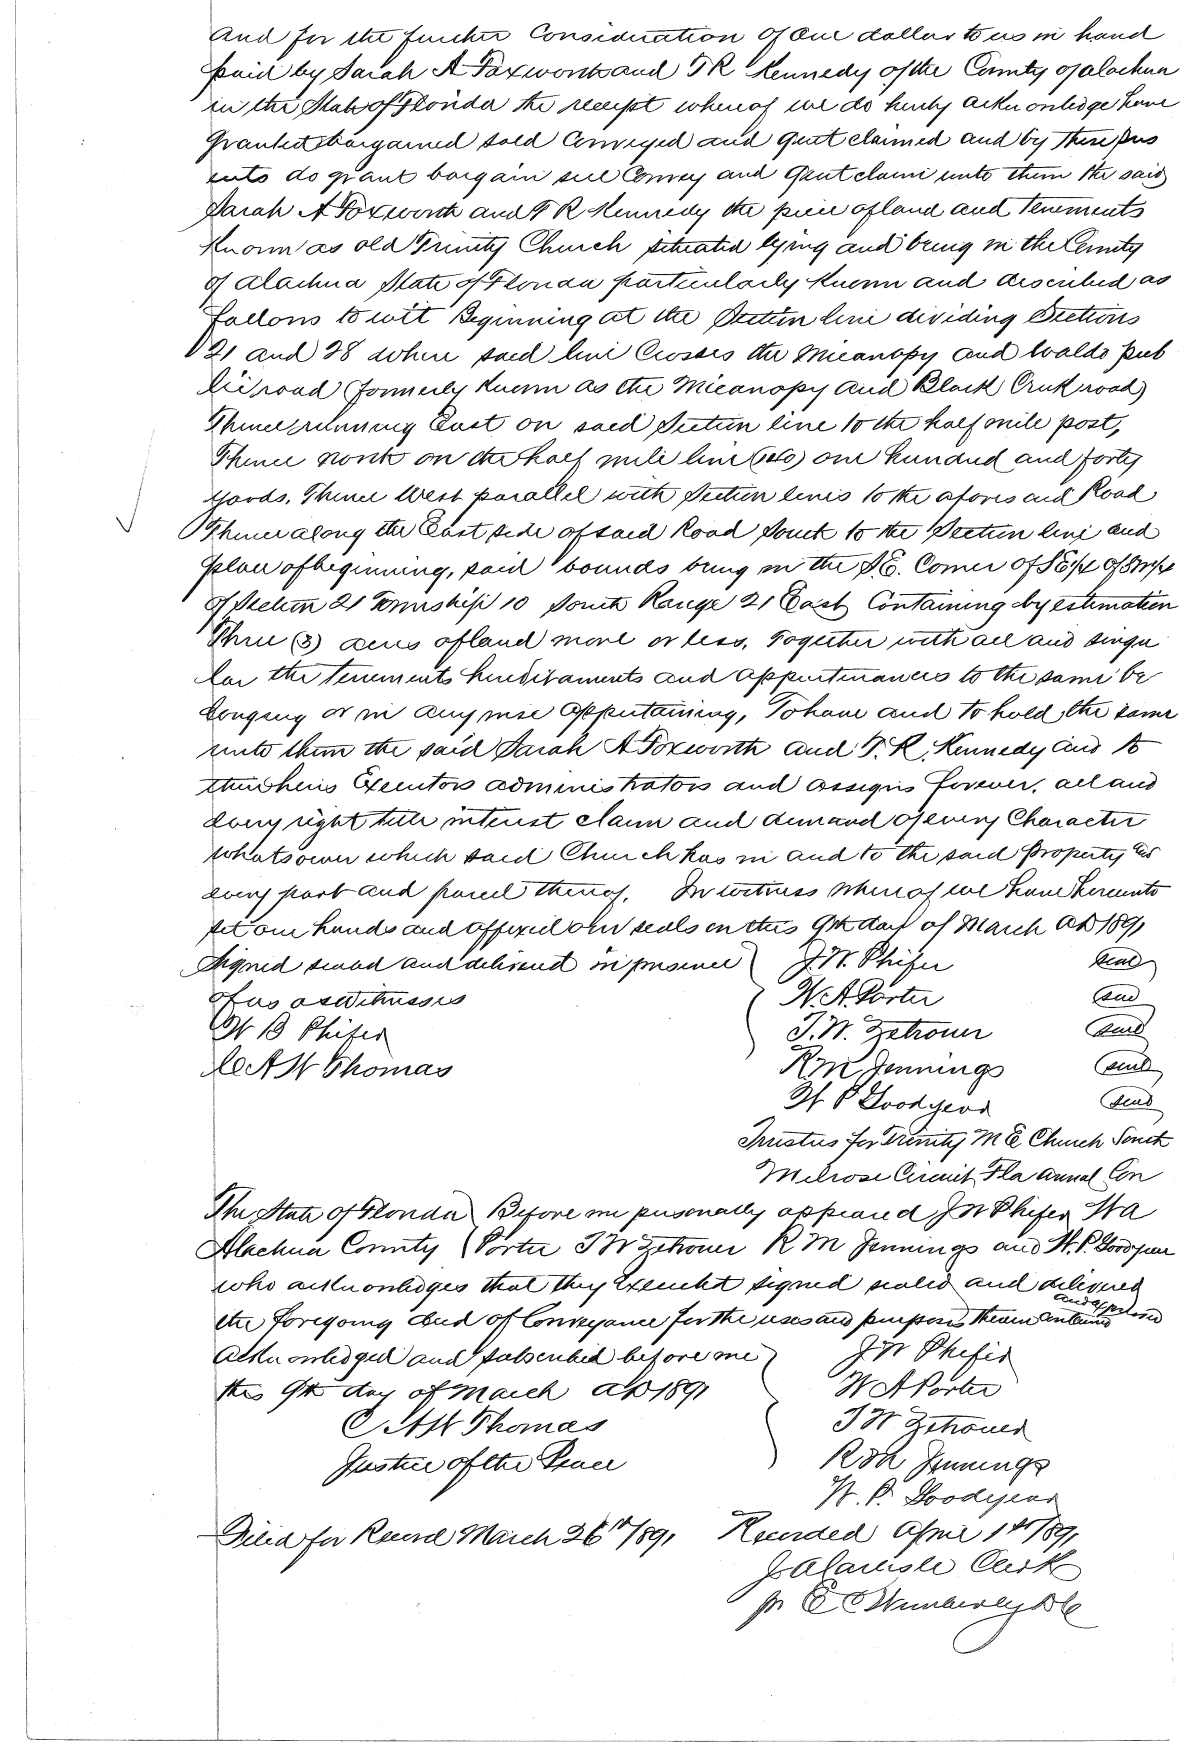 and for the further Consideration of One dollar to us in hand
paid by Sarah A Foxworth and T R Kennedy of the County of Alachua
in the State of Florida the receipt whereof we do hereby acknowledge have
Granted bargained sold Conveyed and quit claimed and by these pres
ents do grant bargain sell Convey and Quit claim unto them the said
Sarah A Foxworth and T R Kennedy the piece of land and Tenements
Known as old Trinity Church situated lying and being in the County
of Alachua State of Florida particularly Known and described as
follows to wit Beginning at the Section line dividing Sections
21 and 28 where said line Crosses the Micanopy and Waldo pub
lic road (formerly Known as the Micanopy and Black Creek road)
Thence running East on said Section line to the half mile post,
Thence North on the half mile line (140) one hundred and forty
yards, Thence West parallel with Section lines to the aforesaid Road
Thence along the East side of said Road South to the Section line and
place of beginning, said bounds being in the S.E. Corner of SE1/4 of SW1/4
of Section 21 Township 10 South Range 21 East Containing by estimation
Three (3) acres of land more or less, Together with all and singu
lar the Tenements hereditaments and appurtenances to the same be
longing or in any wise appertaining, To have and to hold the same
unto them the said Sarah A Foxworth and T. R. Kennedy and to
their heirs Executors administrators and assigns forever, all and
every right title interest claim and demand of every Character
whatsoever which said Church has in and to the said property and
every part and parcel thereof, In witness whereof we have hereunto
set our hands and affixed our seals on this 9th day of March AD 1891
Signed sealed and delivered in presence J. W. Phifer seal
of us as Witnesses W. A. Porter seal
W B Phifer T. W. Zetrouer seal
C A W Thomas R M Jennings seal
W P Goodyear seal
Trustees for Trinity M E Church South
Melrose Circuit Fla annual Con
The State of Florida Before me personally appeared J W Phifer W A
Alachua County Porter T W Zetrouer R M Jennings and W. P. Goodyear
who acknowledges that they Executed signed sealed and delivered
the foregoing deed of Conveyance for the uses and purposes therein contained and expressed
Acknowledged and subscribed before me J W Phifer
this 9th day of March AD 1891 W A Porter
C A W Thomas T W Zetrouer
Justice of the Peace R M Jennings
W. P. Goodyear
Filed for Record March 26th/891 Recorded April 1st/891
J A Carlisle Clerk
pr E C Wimberley D C